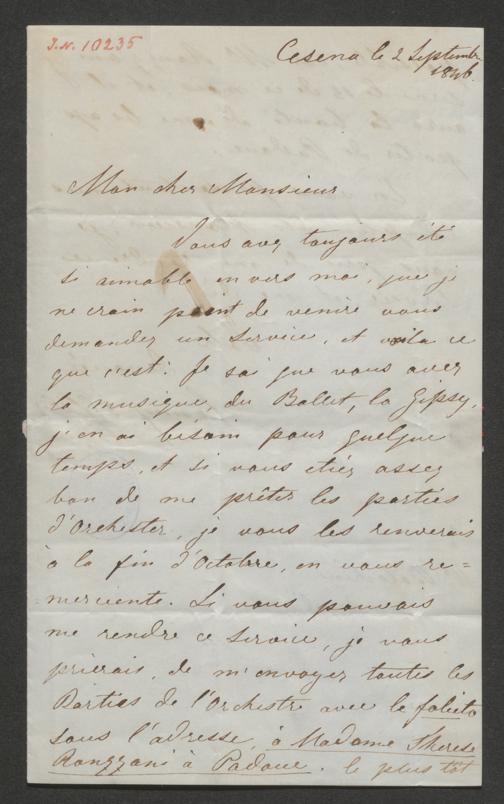 I.N. 10235
Cesena le 2 Septembre
1846.
Mon cher Monsieur
Vous avez toujours été
si aimable en vers moi, que je
ne crain point de venire vous
demander un service, et voila ce
que c'est: Je sai que vous avez
la musique, du Ballet, la Gipsy,
j'en ai bésoin pour quelque
temps, et si vous étiéz assez
bon de me prêter les parties
d'Orchester, je vous les renverais
à la fin d'Octobre, en vous re=
merciente. Si vous pouvais
me rendre ce service, je vous
prierais, de m'envoyer toutes les
Parties de l'Orchestre avec le
sous l'adresse, à Madame Therese
Ronzani à Padoue. le plus tôt